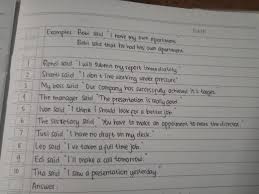 Example: Beni said "I have my own apartment
Beni said that he had his own apartment.
1 Reni said "I will submit my report immediately
2 Shanti said "I don't like working under pressure"
3 My boss said "Our company has successfully achieved it's target.
4 The manager said "The presentation is really good.
5 Ivan said "I think I should look for a better job
6 The secretary said "You have to make an appointment to meet the director.
7 Tuti said "I have no draft on my desk."
8 Leo said "I've taken a full time job.
9 Edi said "I'll make a call tomorrow.
10 Tha said "I saw a presentation yesterday.
Answer: